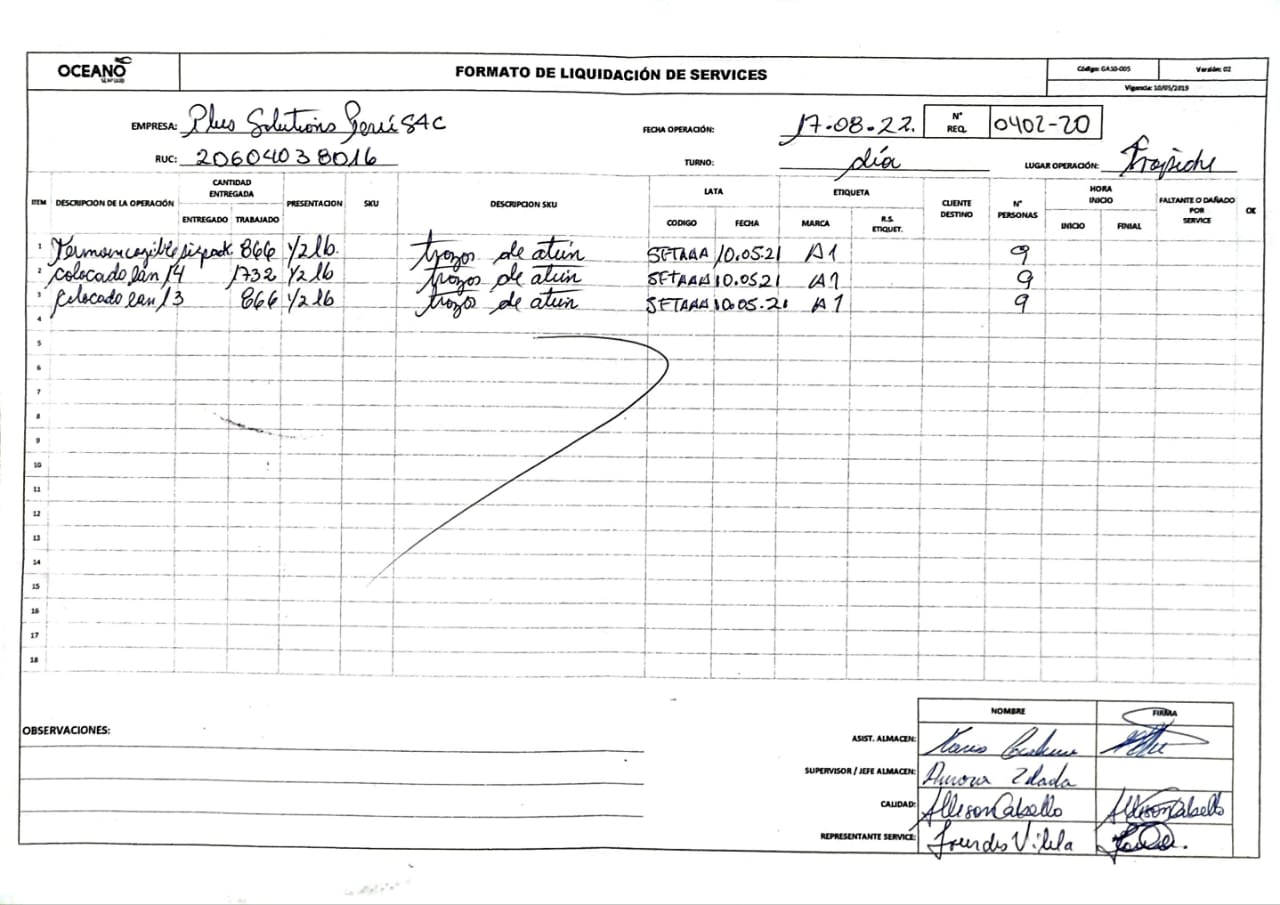 OCEANO
SEAFOOD
FORMATO DE LIQUIDACIÓN DE SERVICES
Código: GASG-005 Versión: 02
Vigencia: 10/05/2019
EMPRESA: Plus Solutions Perú SAC FECHA OPERACIÓN: 17.08.22. N° REQ. 0402-20
RUC: 20604038016 TURNO: día LUGAR OPERACIÓN: Trapiche
ITEM DESCRIPCION DE LA OPERACIÓN CANTIDAD ENTREGADA PRESENTACION SKU DESCRIPCION SKU LATA ETIQUETA CLIENTE DESTINO N° PERSONAS HORA INICIO FALTANTE O DAÑADO POR SERVICE OK
ENTREGADO TRABAJADO CODIGO FECHA MARCA R.S. ETIQUET. INICIO FINIAL
1 866 1/2 lb. trozos de atún SETAAA 10.05.21 A1 9
2 colocado 14 1732 1/2 lb trozos de atún SETAAA 10.05.21 A1 9
3 colocado 13 866 1/2 lb trozos de atún SETAAA 10.05.21 A1 9
4
5
6
7
8
9
10
11
12
13
14
15
16
17
18
OBSERVACIONES:
NOMBRE FIRMA
ASIST. ALMACEN:
SUPERVISOR / JEFE ALMACEN: Aurora
CALIDAD: Allison Cabello Allison Cabello
REPRESENTANTE SERVICE: Lourdes Vilela